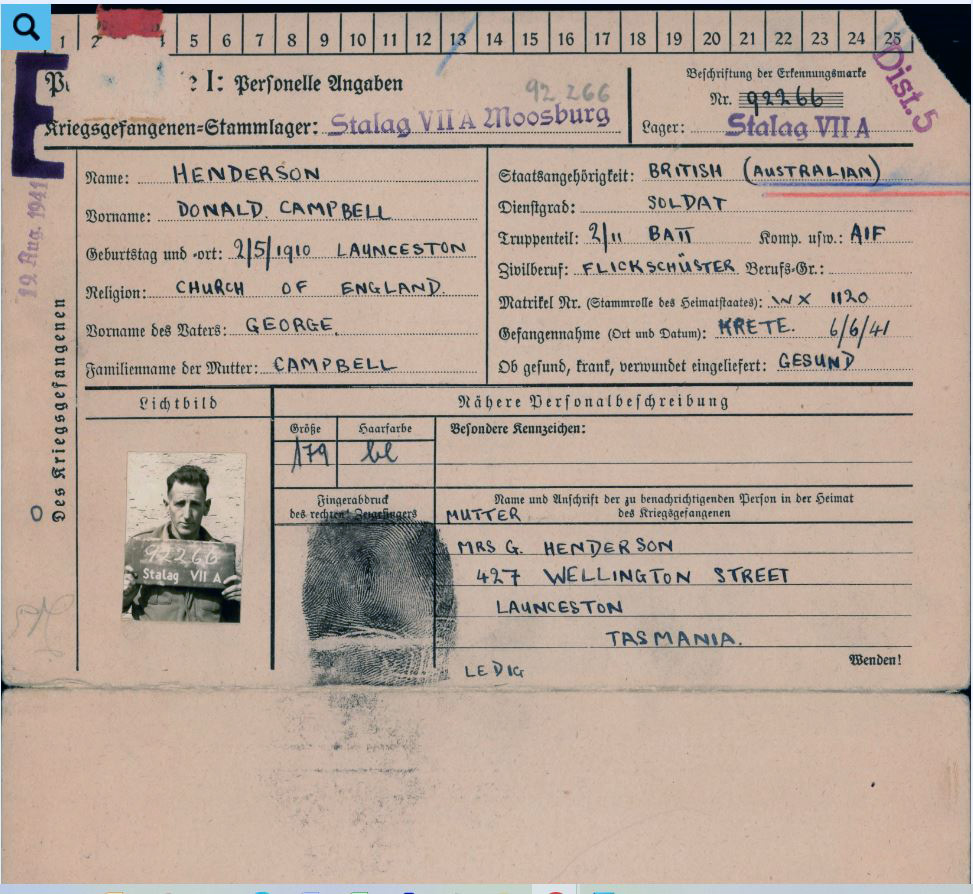 1 2 4 5 6 7 8 9 10 11 12 13 14 15 16 17 18 19 20 21 22 23 24 25
I: Personelle Angaben
92266
Kriegsgefangenen=Stammlager: Stalag VII A Moosburg
Beschriftung der Erkennungsmarke
Nr. 92266
Lager: Stalag VII A
Dist. 5
19. Aug. 1941
Des Kriegsgefangenen
Name: HENDERSON
Vorname: DONALD. CAMPBELL
Geburtstag und -ort: 2/5/1910 LAUNCESTON
Religion: CHURCH OF ENGLAND.
Vorname des Vaters: GEORGE.
Familienname der Mutter: CAMPBELL
Staatsangehörigkeit: BRITISH (AUSTRALIAN)
Dienstgrad: SOLDAT
Truppenteil: 2/11 BATT Komp. usw.: AIF
Zivilberuf: FLICKSCHÜSTER Berufs-Gr.:
Matrikel Nr. (Stammrolle des Heimatstaates): WX 1120
Gefangennahme (Ort und Datum): KRETE. 6/6/41
Ob gesund, krank, verwundet eingeliefert: GESUND
Lichtbild
92266
Stalag VII A
Nähere Personalbeschreibung
Größe Haarfarbe
179 bl
Besondere Kennzeichen:
Fingerabdruck
des rechten Zeigefingers
Name und Anschrift der zu benachrichtigenden Person in der Heimat
des Kriegsgefangenen
MUTTER
MRS G. HENDERSON
427 WELLINGTON STREET
LAUNCESTON
TASMANIA.
LEDIG
Wenden!